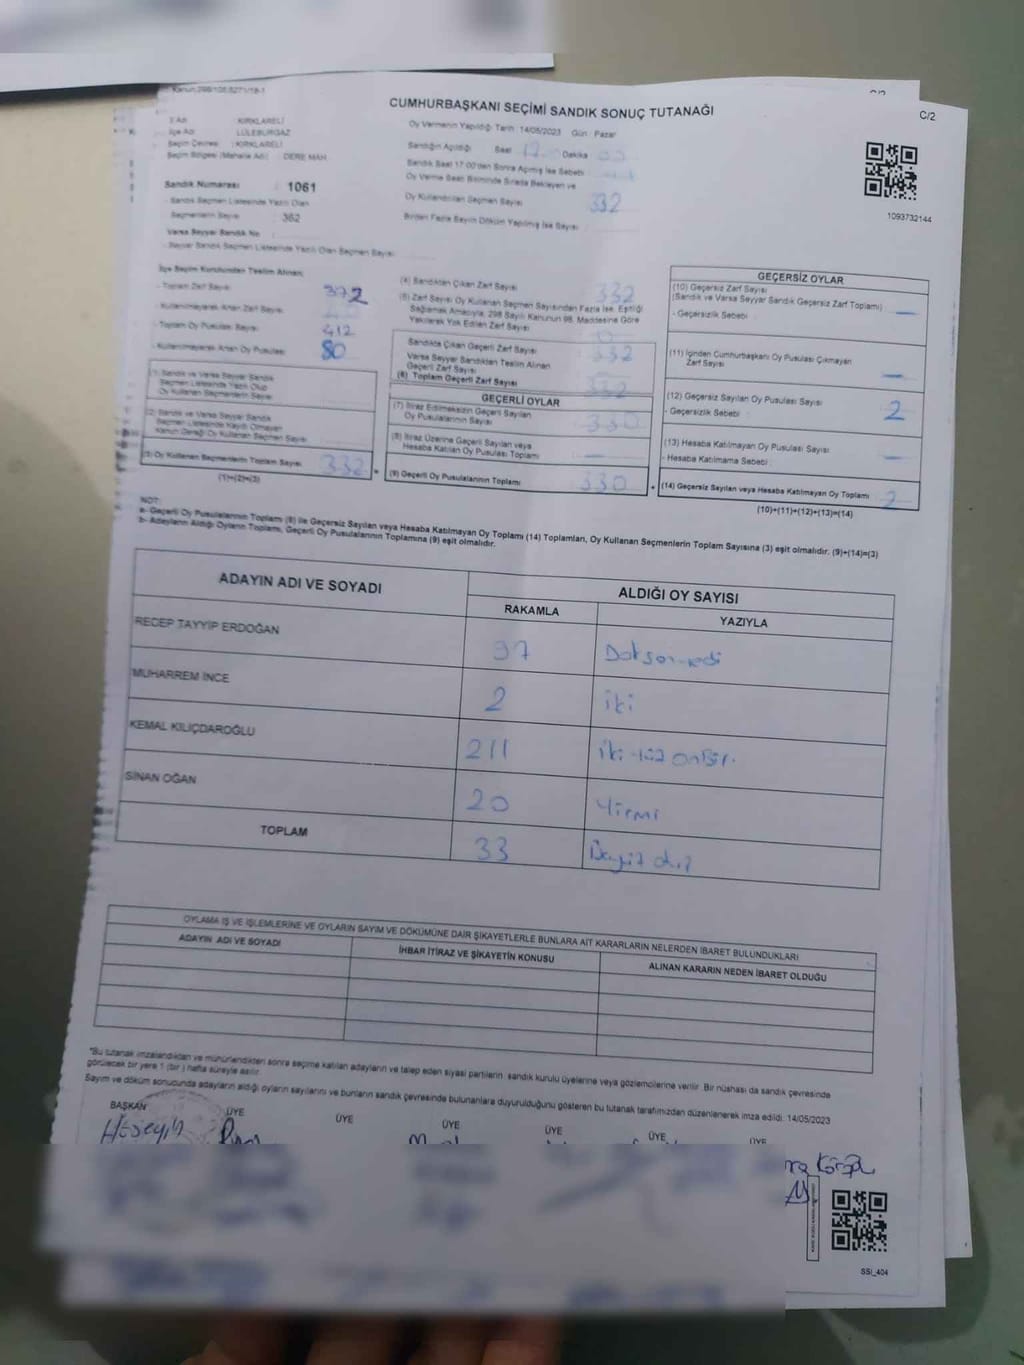 Kanun:298/105,6271/18-1
CUMHURBAŞKANI SEÇİMİ SANDIK SONUÇ TUTANAĞI
C/2
İl Adı : KIRKLARELİ
İlçe Adı : LÜLEBURGAZ
Seçim Çevresi : KIRKLARELİ
Seçim Bölgesi (Mahalle Adı) : DERE MAH.
Sandık Numarası : 1061
- Sandık Seçmen Listesinde Yazılı Olan
Seçmenlerin Sayısı : 362
Varsa Seyyar Sandık No :
- Seyyar Sandık Seçmen Listesinde Yazılı Olan Seçmen Sayısı :
Oy Vermenin Yapıldığı Tarih : 14/05/2023 Gün : Pazar
Sandığın Açıldığı Saat 17 Dakika
Sandık Saat 17:00'den Sonra Açılmış İse Sebebi
Oy Verme Saati Bitiminde Sırada Bekleyen ve
Oy Kullandırılan Seçmen Sayısı 332
Birden Fazla Sayım Döküm Yapılmış İse Sayısı
1093732144
İlçe Seçim Kurulundan Teslim Alınan;
- Toplam Zarf Sayısı 372
- Kullanılmayarak Artan Zarf Sayısı
- Toplam Oy Pusulası Sayısı 412
- Kullanılmayarak Artan Oy Pusulası 80
(1) Sandık ve Varsa Seyyar Sandık
Seçmen Listesinde Yazılı Olup
Oy Kullanan Seçmenlerin Sayısı
(2) Sandık ve Varsa Seyyar Sandık
Seçmen Listesinde Kaydı Olmayan
Kanun Gereği Oy Kullanan Seçmen Sayısı
(3) Oy Kullanan Seçmenlerin Toplam Sayısı 332 =
(1)+(2)=(3)
(4) Sandıktan Çıkan Zarf Sayısı 332
(5) Zarf Sayısı Oy Kullanan Seçmen Sayısından Fazla İse, Eşitliği
Sağlamak Amacıyla, 298 Sayılı Kanunun 98. Maddesine Göre
Yakılarak Yok Edilen Zarf Sayısı
Sandıkta Çıkan Geçerli Zarf Sayısı 332
Varsa Seyyar Sandıktan Teslim Alınan
Geçerli Zarf Sayısı
(6) Toplam Geçerli Zarf Sayısı 332
GEÇERLİ OYLAR
(7) İtiraz Edilmeksizin Geçerli Sayılan
Oy Pusulalarının Sayısı 330
(8) İtiraz Üzerine Geçerli Sayılan veya
Hesaba Katılan Oy Pusulası Toplamı —
(9) Geçerli Oy Pusulalarının Toplamı 330 +
GEÇERSİZ OYLAR
(10) Geçersiz Zarf Sayısı
(Sandık ve Varsa Seyyar Sandık Geçersiz Zarf Toplamı) —
- Geçersizlik Sebebi :
(11) İçinden Cumhurbaşkanı Oy Pusulası Çıkmayan
Zarf Sayısı —
(12) Geçersiz Sayılan Oy Pusulası Sayısı 2
- Geçersizlik Sebebi :
(13) Hesaba Katılmayan Oy Pusulası Sayısı —
- Hesaba Katılmama Sebebi :
(14) Geçersiz Sayılan veya Hesaba Katılmayan Oy Toplamı 2
(10)+(11)+(12)+(13)=(14)
NOT:
a- Geçerli Oy Pusulalarının Toplamı (9) ile Geçersiz Sayılan veya Hesaba Katılmayan Oy Toplamı (14) Toplamları, Oy Kullanan Seçmenlerin Toplam Sayısına (3) eşit olmalıdır. (9)+(14)=(3)
b- Adayların Aldığı Oyların Toplamı, Geçerli Oy Pusulalarının Toplamına (9) eşit olmalıdır.
ADAYIN ADI VE SOYADI ALDIĞI OY SAYISI
RAKAMLA YAZIYLA
RECEP TAYYİP ERDOĞAN 97 Doksanyedi
MUHARREM İNCE 2 iki
KEMAL KILIÇDAROĞLU 211 iki yüz onbir.
SİNAN OĞAN 20 Yirmi
TOPLAM 33
OYLAMA İŞ VE İŞLEMLERİNE VE OYLARIN SAYIM VE DÖKÜMÜNE DAİR ŞİKAYETLERLE BUNLARA AİT KARARLARIN NELERDEN İBARET BULUNDUKLARI
ADAYIN ADI VE SOYADI İHBAR İTİRAZ VE ŞİKAYETİN KONUSU ALINAN KARARIN NEDEN İBARET OLDUĞU
"Bu tutanak imzalandıktan ve mühürlendikten sonra seçime katılan adayların ve talep eden siyasi partilerin, sandık kurulu üyelerine veya gözlemcilerine verilir. Bir nüshası da sandık çevresinde
görülecek bir yere 1 (bir ) hafta süreyle asılır.
Sayım ve döküm sonucunda adayların aldığı oyların sayılarını ve bunların sandık çevresinde bulunanlara duyurulduğunu gösteren bu tutanak tarafımızdan düzenlenerek imza edildi. 14/05/2023
BAŞKAN ÜYE ÜYE ÜYE ÜYE ÜYE ÜYE
Hüseyin
SSI_404